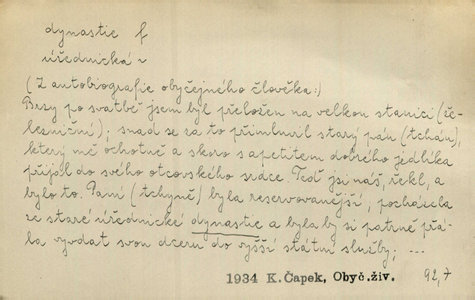 dynastie f
úřednická v
(Z autobiografie obyčejného člověka:)
Brzy po svatbě jsem byl přeložen na velkou stanici (že-
lezniční); snad se za to přimluvil starý pán (tchán),
který mě ochotně a skoro s apetitem dobrého jedlíka
přijal do svého otcovského srdce. Teď jsi náš, řekl, a
bylo to. Paní (tchyně) byla reservovanější, pocházela
ze staré úřednické dynastie a byla by si patrně přá-
la vyvdat svou dceru do vyšší státní služby; ---
1934 K. Čapek, Obyč.živ. 92,7